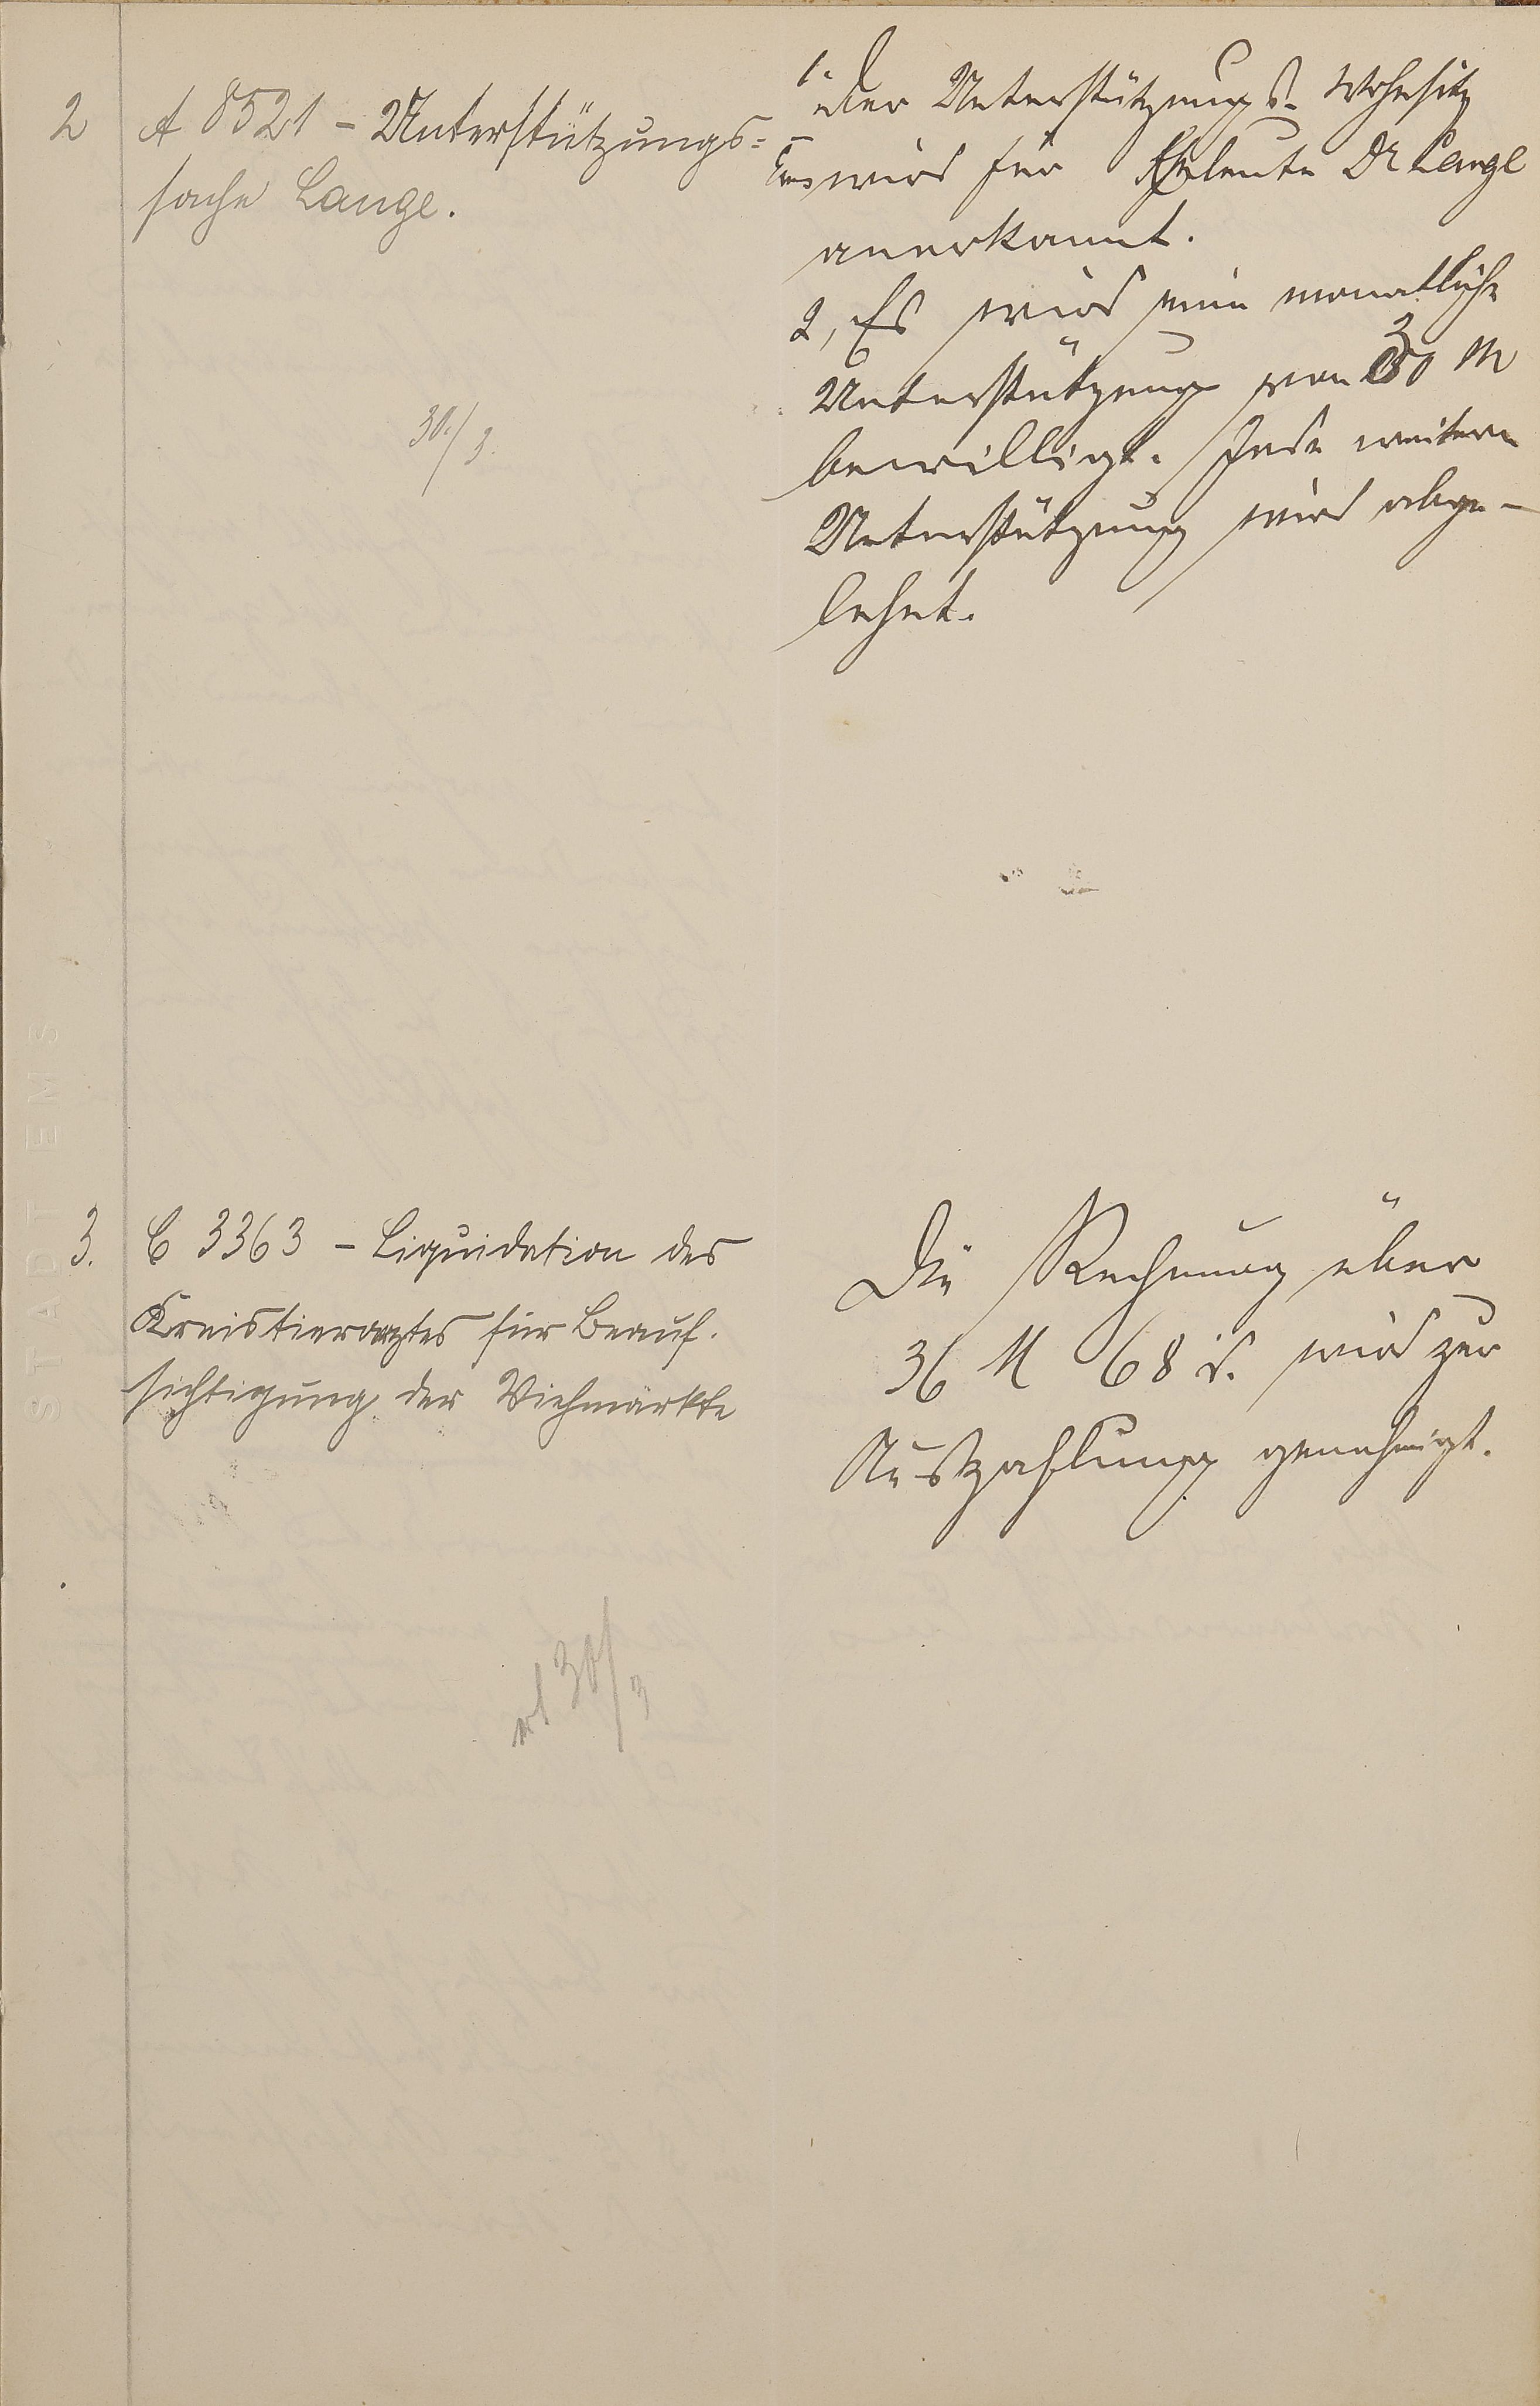 2 A 8521 - Unterstützungs-
sache Lange.
30./3.
1. Der Unterstützungs-Wohnsitz
Ems wird für Eheleute Dr Lange
anerkannt.
2, Es wird eine monatliche
Unterstützung von 30 M
bewilligt. Jede weitere
Unterstützung wird abge-
lehnt.
3. C 3363 - Liquidation des
Kreistierarztes für Beauf-
sichtigung der Viehmärkte
30/3
Die Rechnung über
36 M 68 d. wird zur
Auszahlung genehmigt.
STADT EMS